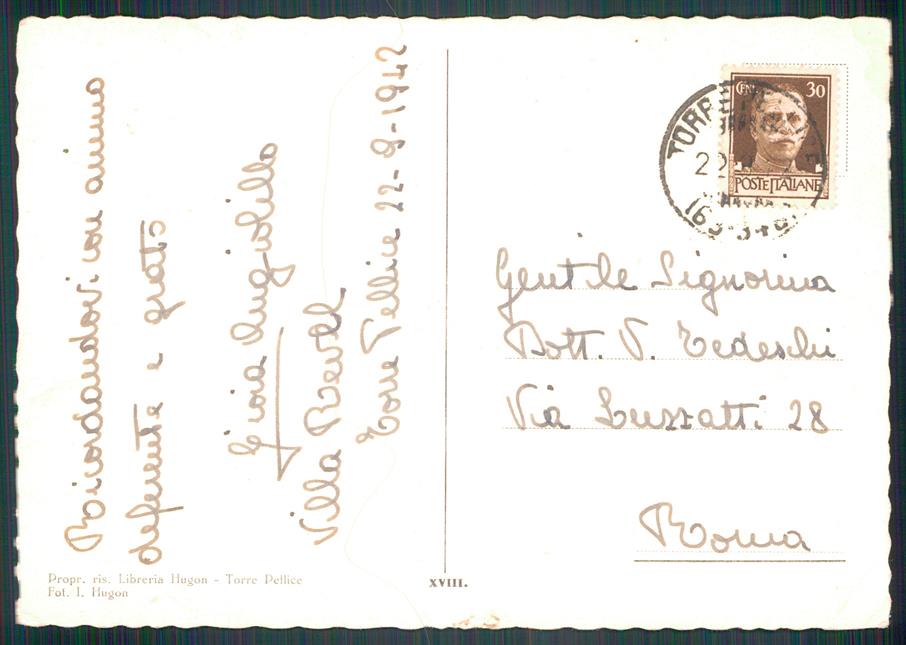 Ricordandovi con animo
deferente e grato
Gioia Angiolillo
Villa Revel
Torre Pellice 22-9-1942
Propr. ris. Libreria Hugon - Torre Pellice
Fot. I. Hugon
XVIII.
CENT 30
POSTE ITALIANE
TORRE
22
Gentile Signorina
Dott. V. Tedeschi
Via Luzzatti 28
Roma